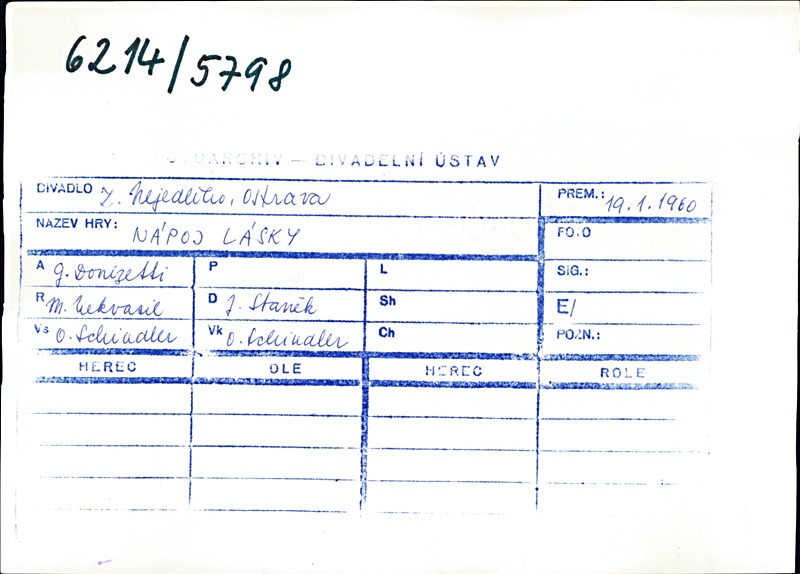 6214/5798
FOTOARCHIV – DIVADELNÍ ÚSTAV
DIVADLO Z. Nejedlého, Ostrava PREM.: 19.1.1960
NÁZEV HRY: NÁPOJ LÁSKY FOTO
A G. Donizetti P L SIG.:
R M. Nekvasil D J. Staněk Sh E/
Vs O. Schindler Vk O. Schindler Ch POZN.:
HEREC ROLE HEREC ROLE